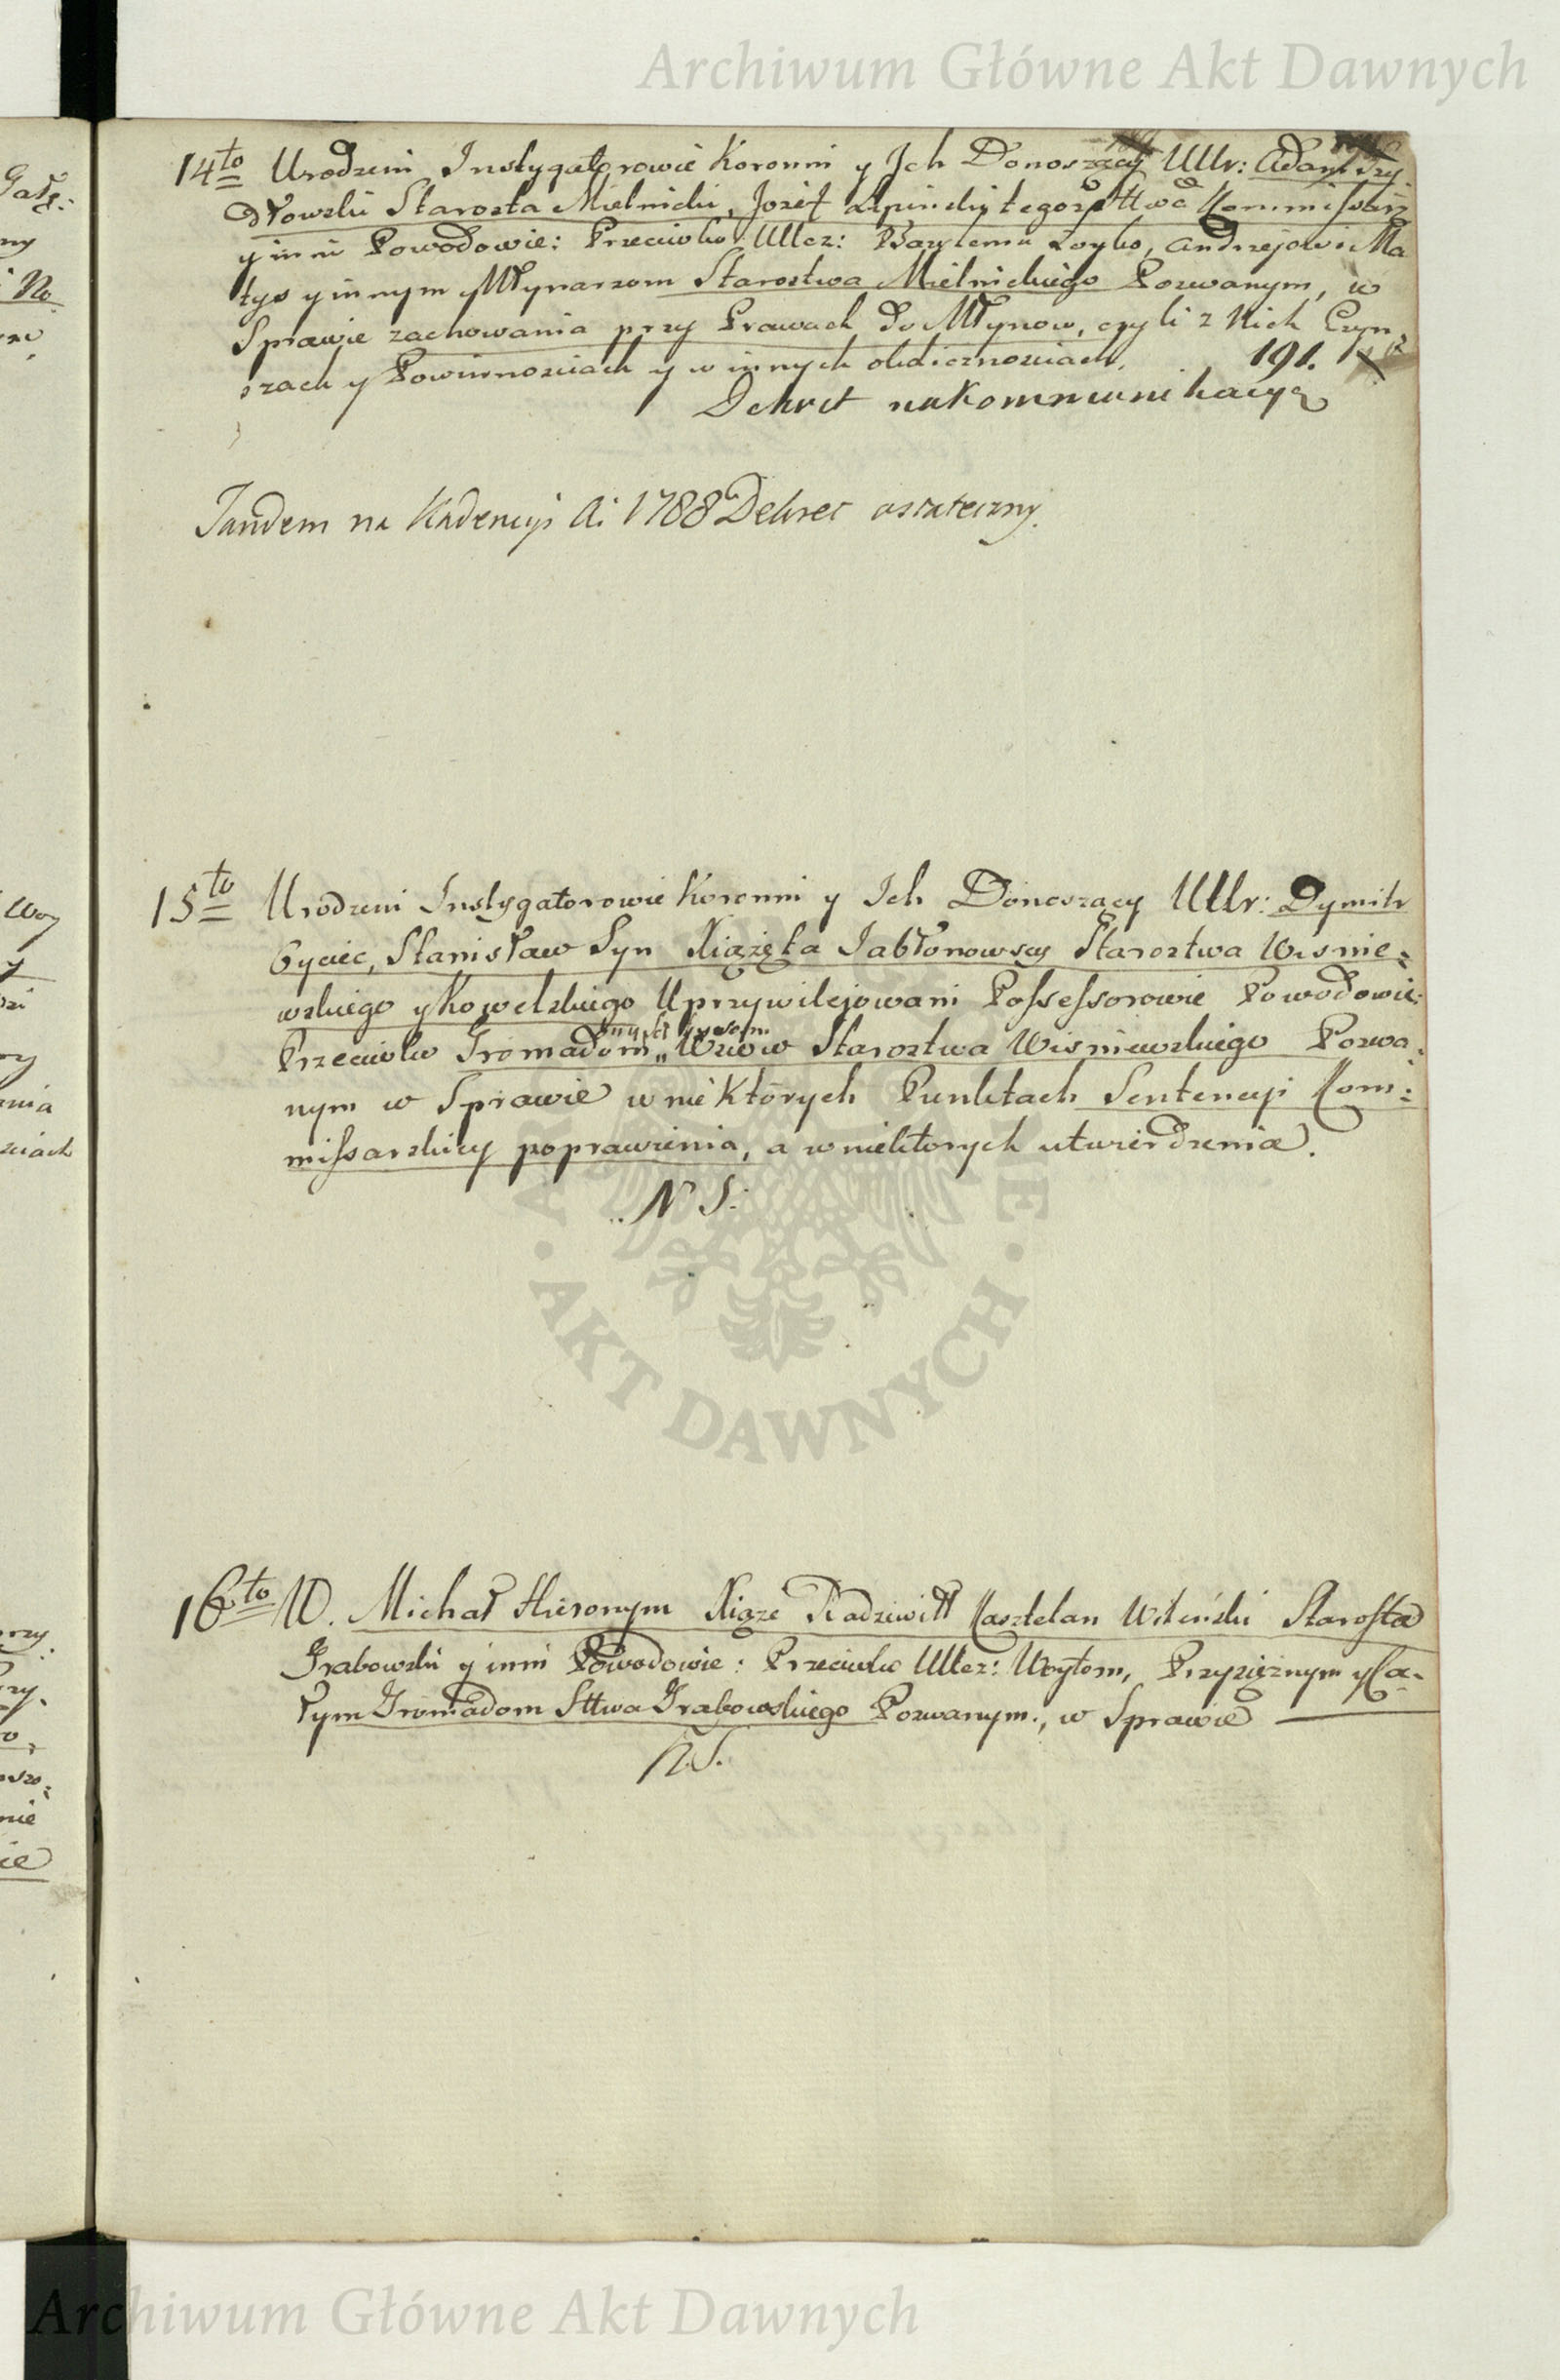 Archiwum Główne Akt Dawnych
14to Urodzeni Instygatorowie Koronni y Ich Donoszący Ullr: Adam Szy
dłowski Starosta Mielnicki, Jozef tegoż Sttwa Kommissarz
y inni Powodowie: Przeciwko Ulcz: Andrzejowi Ma
tys y innym y Młynarzom Starostwa Mielnickiego Pozwanym, w
Sprawie zachowania przy Prawach do Młynow, czyli z Nich Czyn:
szach y Powinnosciach y w innych okolicznosciach. 191.
Dekret na kommunikacyą
Tandem na Kadencyi A: 1788 Dekret ostateczny.
15to Urodzeni Instygatorowie Koronni y Ich Donoszący Ullr: Dymitr
Oyciec, Stanisław Syn Xiążęta Jabłonowscy Starostwa Wisnie:
wskiego y Kowelskiego Uprzywilejowani Possessorowie Powodowie:
Przeciwko Gromadom „ Wsiow Starostwa Wisniewskiego Pozwa:
nym w Sprawie w nie Ktorych Punktach Sentencyi Kom:
missarskiey poprawienia, a w niektorych utwierdzenia.
N S:
16to W. Michał Hieronym Xiąże Radziwiłł Kasztelan Wileński Starosta
Grabowski y inni Powodowie: Przeciwko Ulcz: Woytom, Przysiężnym y Ca:
łym Gromadom Sttwa Grabowskiego Pozwanym, w Sprawie
N.S.
AKT DAWNYCH
Archiwum Główne Akt Dawnych